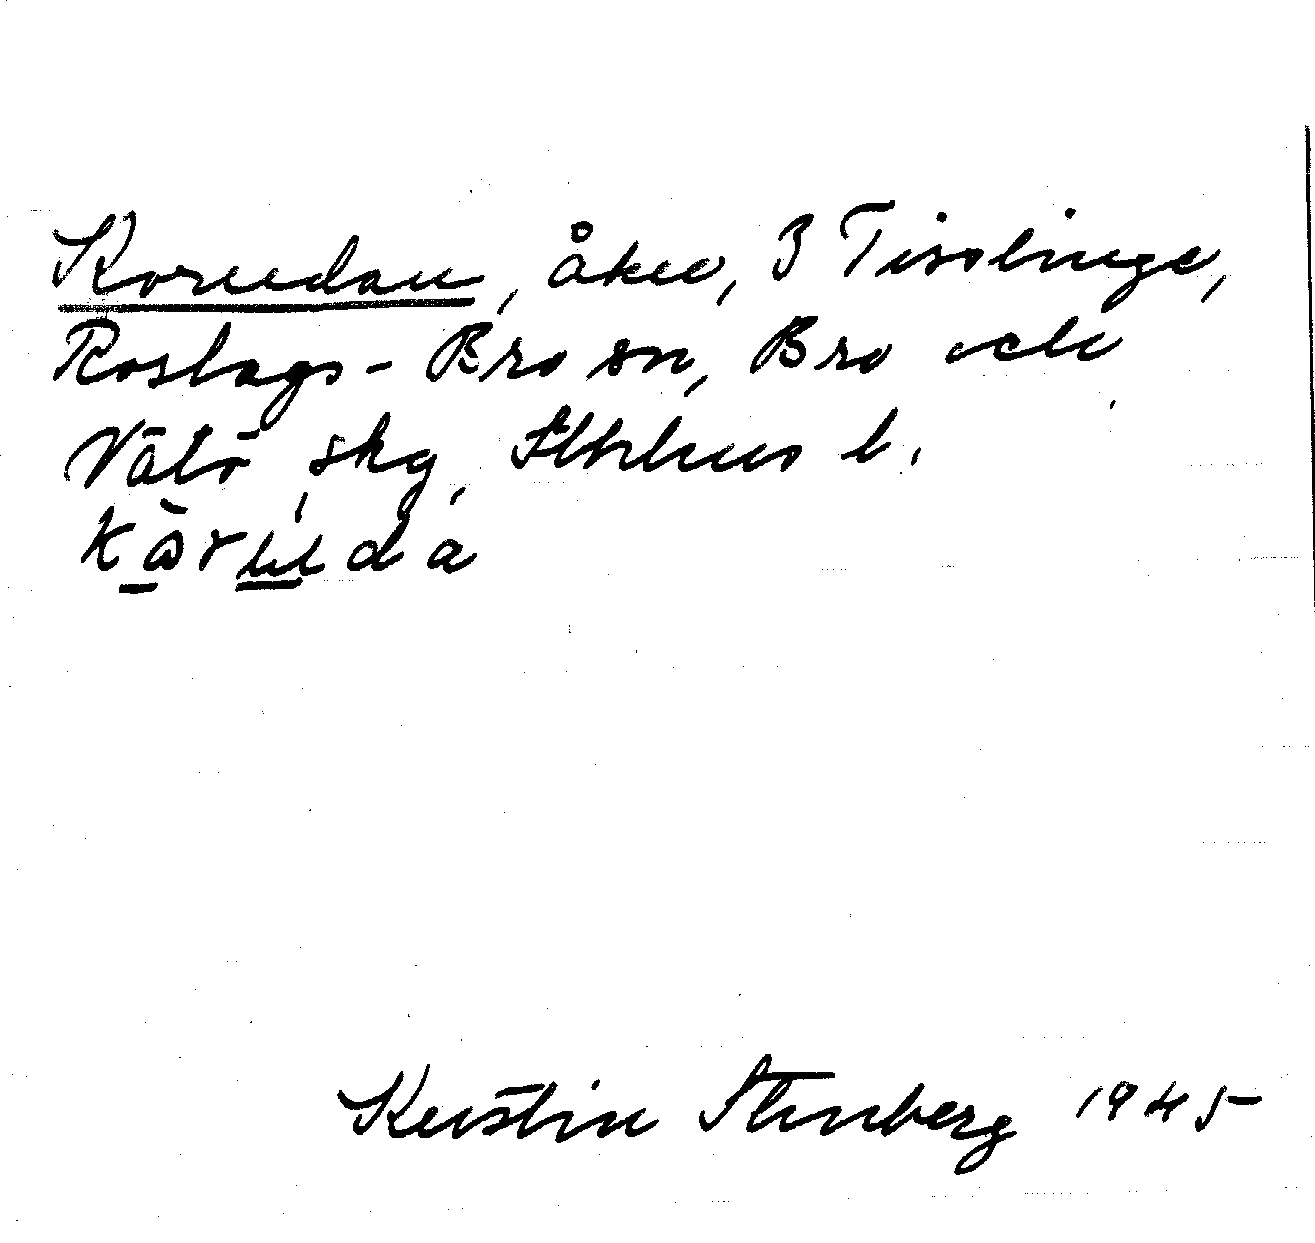 Korndan, åker, 3 Tisslinge,
Roslags-Bro sn, Bro och
Vätö skg, Sthlms l.
Kerstin Stenberg 1945